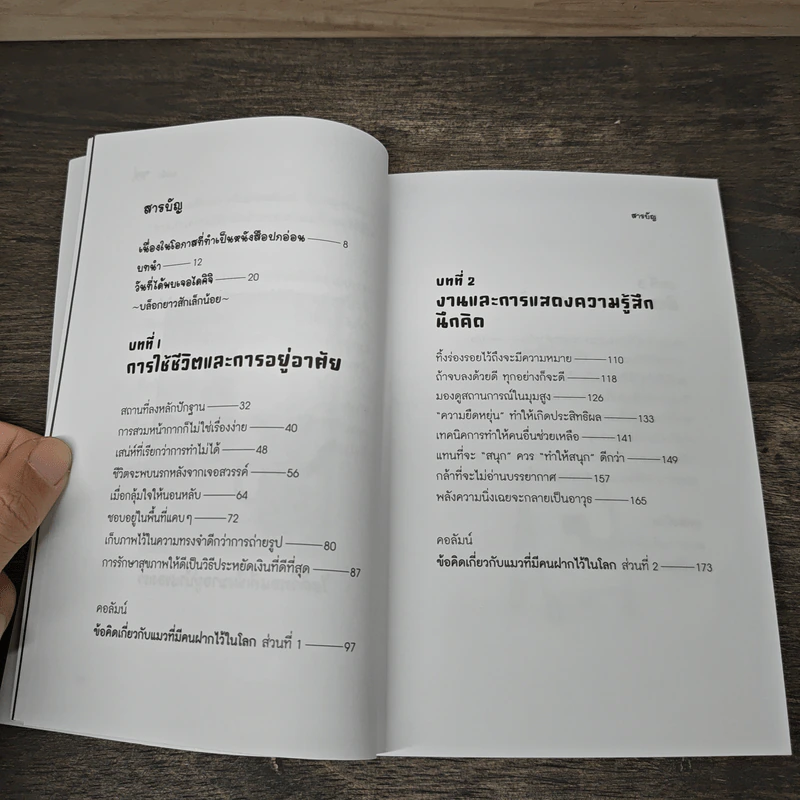 สารบัญ
เนื่องในโอกาสที่ทำเป็นหนังสือปกอ่อน 8
บทนำ 12
วันที่ได้พบเจอไดคิจิ 20
~บล็อกยาวสักเล็กน้อย~
บทที่ 1
การใช้ชีวิตและการอยู่อาศัย
สถานที่ลงหลักปักฐาน 32
การสวมหน้ากากก็ไม่ใช่เรื่องง่าย 40
เสน่ห์ที่เรียกว่าการทำไม่ได้ 48
ชีวิตจะพบนรกหลังจากเจอสวรรค์ 56
เมื่อกลุ้มใจให้นอนหลับ 64
ชอบอยู่ในพื้นที่แคบๆ 72
เก็บภาพไว้ในความทรงจำดีกว่าการถ่ายรูป 80
การรักษาสุขภาพให้ดีเป็นวิธีประหยัดเงินที่ดีที่สุด 87
คอลัมน์
ข้อคิดเกี่ยวกับแมวที่มีคนฝากไว้ในโลก ส่วนที่ 1 97
สารบัญ
บทที่ 2
งานและการแสดงความรู้สึก
นึกคิด
ทิ้งร่องรอยไว้ถึงจะมีความหมาย 110
ถ้าจบลงด้วยดี ทุกอย่างก็จะดี 118
มองดูสถานการณ์ในมุมสูง 126
"ความยืดหยุ่น" ทำให้เกิดประสิทธิผล 133
เทคนิคการทำให้คนอื่นช่วยเหลือ 141
แทนที่จะ "สนุก" ควร "ทำให้สนุก" ดีกว่า 149
กล้าที่จะไม่อ่านบรรยากาศ 157
พลังความนิ่งเฉยจะกลายเป็นอาวุธ 165
คอลัมน์
ข้อคิดเกี่ยวกับแมวที่มีคนฝากไว้ในโลก ส่วนที่ 2 173